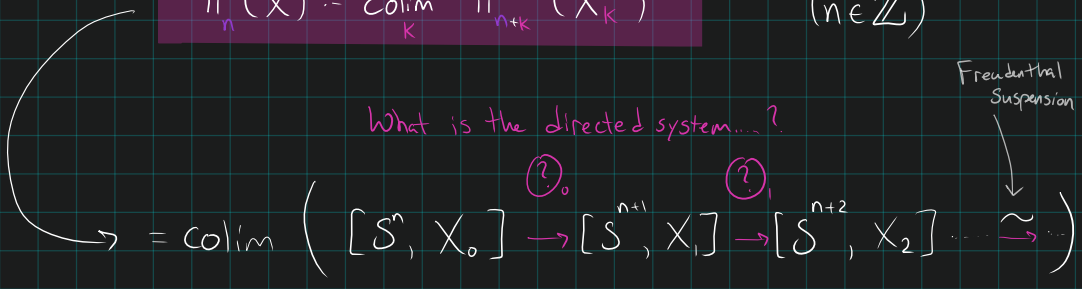 π_n(X) := colim_k π_{n+k}(X_k) (n∈ℤ)
Freudenthal
Suspension
What is the directed system....?
?₀ ?₁
= colim ( [Sⁿ, X₀] → [Sⁿ⁺¹, X₁] → [Sⁿ⁺², X₂] ..... ⥲ ... )